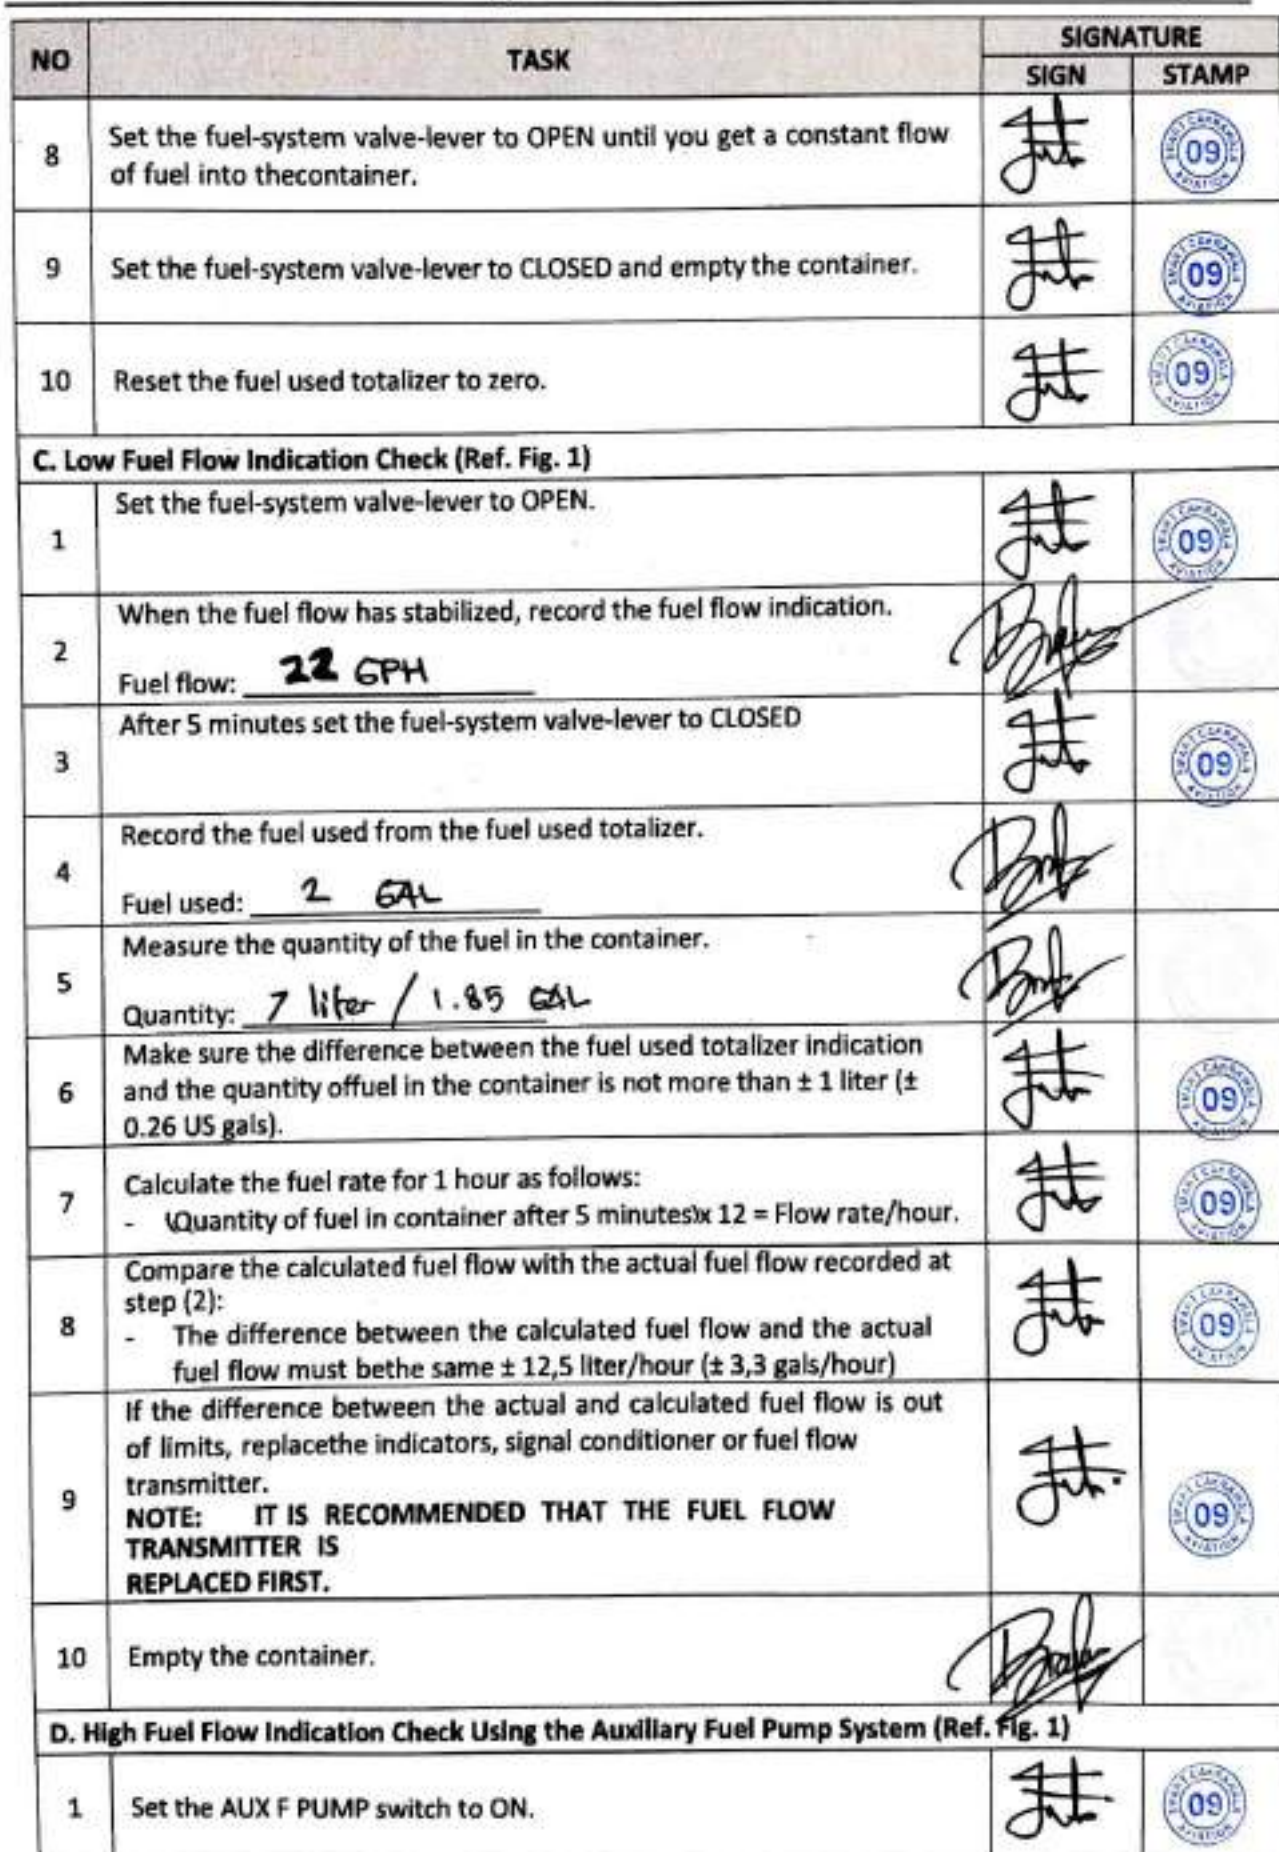 NO TASK SIGNATURE
SIGN STAMP
8 Set the fuel-system valve-lever to OPEN until you get a constant flow
of fuel into thecontainer.
SMART CAKRAWALA AVIATION 09
9 Set the fuel-system valve-lever to CLOSED and empty the container.
SMART CAKRAWALA AVIATION 09
10 Reset the fuel used totalizer to zero.
SMART CAKRAWALA AVIATION 09
C. Low Fuel Flow Indication Check (Ref. Fig. 1)
1 Set the fuel-system valve-lever to OPEN.
SMART CAKRAWALA AVIATION 09
2 When the fuel flow has stabilized, record the fuel flow indication.
Fuel flow: 22 GPH
3 After 5 minutes set the fuel-system valve-lever to CLOSED
SMART CAKRAWALA AVIATION 09
4 Record the fuel used from the fuel used totalizer.
Fuel used: 2 GAL
5 Measure the quantity of the fuel in the container.
Quantity: 7 liter / 1.85 GAL
6 Make sure the difference between the fuel used totalizer indication
and the quantity offuel in the container is not more than ± 1 liter (±
0.26 US gals).
SMART CAKRAWALA AVIATION 09
7 Calculate the fuel rate for 1 hour as follows:
- (Quantity of fuel in container after 5 minutes)x 12 = Flow rate/hour.
SMART CAKRAWALA AVIATION 09
8 Compare the calculated fuel flow with the actual fuel flow recorded at
step (2):
- The difference between the calculated fuel flow and the actual
fuel flow must bethe same ± 12,5 liter/hour (± 3,3 gals/hour)
SMART CAKRAWALA AVIATION 09
9 If the difference between the actual and calculated fuel flow is out
of limits, replacethe indicators, signal conditioner or fuel flow
transmitter.
NOTE: IT IS RECOMMENDED THAT THE FUEL FLOW
TRANSMITTER IS
REPLACED FIRST.
SMART CAKRAWALA AVIATION 09
10 Empty the container.
D. High Fuel Flow Indication Check Using the Auxiliary Fuel Pump System (Ref. Fig. 1)
1 Set the AUX F PUMP switch to ON.
SMART CAKRAWALA AVIATION 09